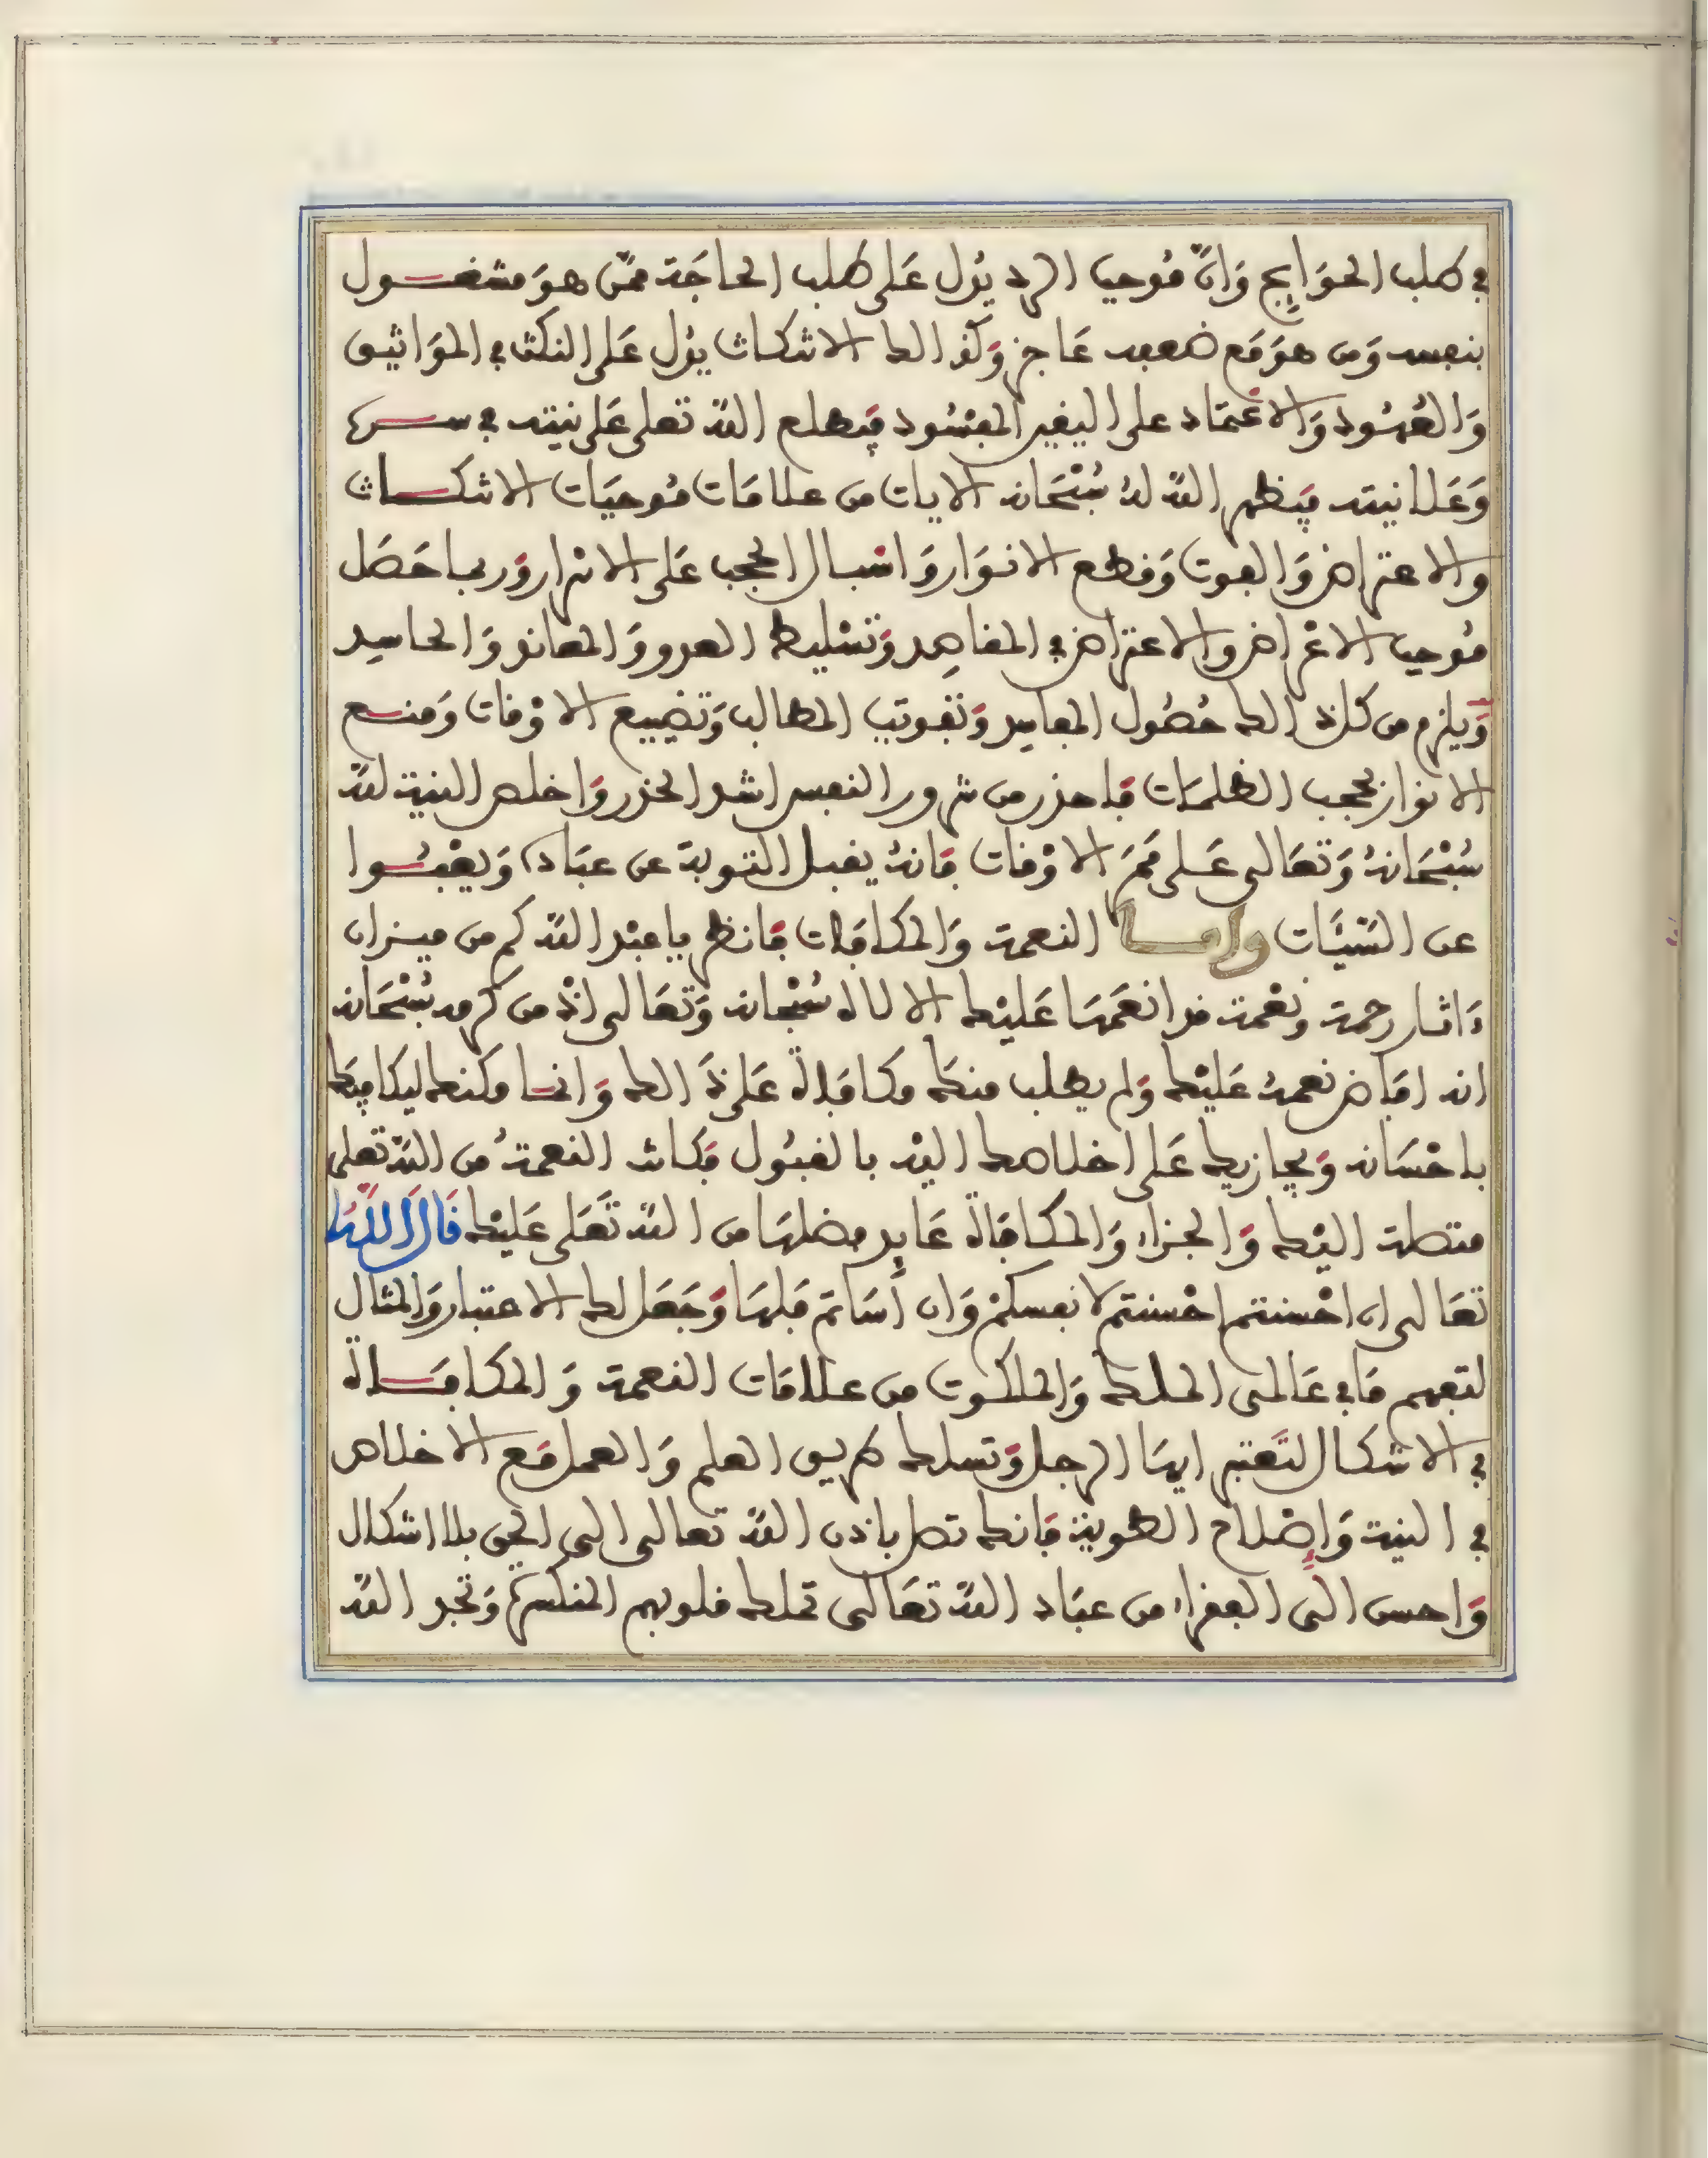 في طلب الحوَايِج وَانَّ مُوحيا الرد يؤل عَلى طلب الحاجَة ممّن هوَ مشغــول
بنفسه وَمن هوَ مَع ضعفه عَاجز وَكذالك الاشكاث يؤل عَلى النكث في المَوَاثيق
وَالعُهُود وَالاعْتمَاد على اليغير المفسُود فيَطلع اللهّ تعلى عَلى نيته في ســره
وَعَلانيته فيَظهر اللهّ لهُ سُبْحَانه الايات من علامَات مُوحيَات الاشكــاث
والاعتراض وَالفوت وَقطع الانوَار وَاسْبال الحجب عَلى الاسْرار وَربما حَصَل
مُوحيا الاعْراض والاعتراض في المقاصِد وَتسْليط العدو وَالمعاند وَالحاسِد
وَيلزم من كل ذالك حُصُول المفاسِد وَتفويت المطالب وَتضييع الاوْقات وَمنــع
الانوَار بحجب الظلمَات فاحذر من شرور النفس اشد الحذر وَاخلص النية للهّ
سُبْحَانهُ وَتعَالى عَلى مَمَرّ الاوْقات فانهُ يقبل التوبة عن عبَاده وَيعْفُــوا
عن السّيئَات وامــا النعمة وَالمكافات فانظر ياعبْد اللهّ كم من ميزان
ءَاثار رحمة وَنعْمة قد انعَمهَا عَليْك الالاه سُبْحانه وَتعَالى اذْ من كرمه سُبْحَانه
انه افاض نعمهُ عَليْك وَلم يطلب منكَ مكافاة عَلى ذَالك وَانمــا مكنك ليكافيَك
باحْسَانه وَيجازيك عَلى اخلاصك اليْه بالقبُول فكانت النعمةُ من اللهّ تعلى
متصلة اليْك وَالجزاء وَالمكافاة عَايِد فضلهَا من اللهّ تعَلى عَليْك قَالَ اللَّهُ
تعَالى ان احْسنتم احْسنتم لانفسكمْ وَان أسَاتم فلهَا وَجَعَل لك الاعتبار وَالمثال
لتفهم مَا في عَالمى الملك وَالملكوت من علامَات النعمة وَالمكافــاة
في الاشكال لتَعتبر ايهَا الرجل وَتسلك طريق العلم وَالعمل مَع الاخلاص
في النية وَإصْلاح الطوية فانك تصل باذن اللهّ تعالى الى الحق بلا اشكال
وَاحسن الى الفقراء من عبَاد اللهّ تعَالى تملك قلوبهم المنكسرة وَتجد اللهّ